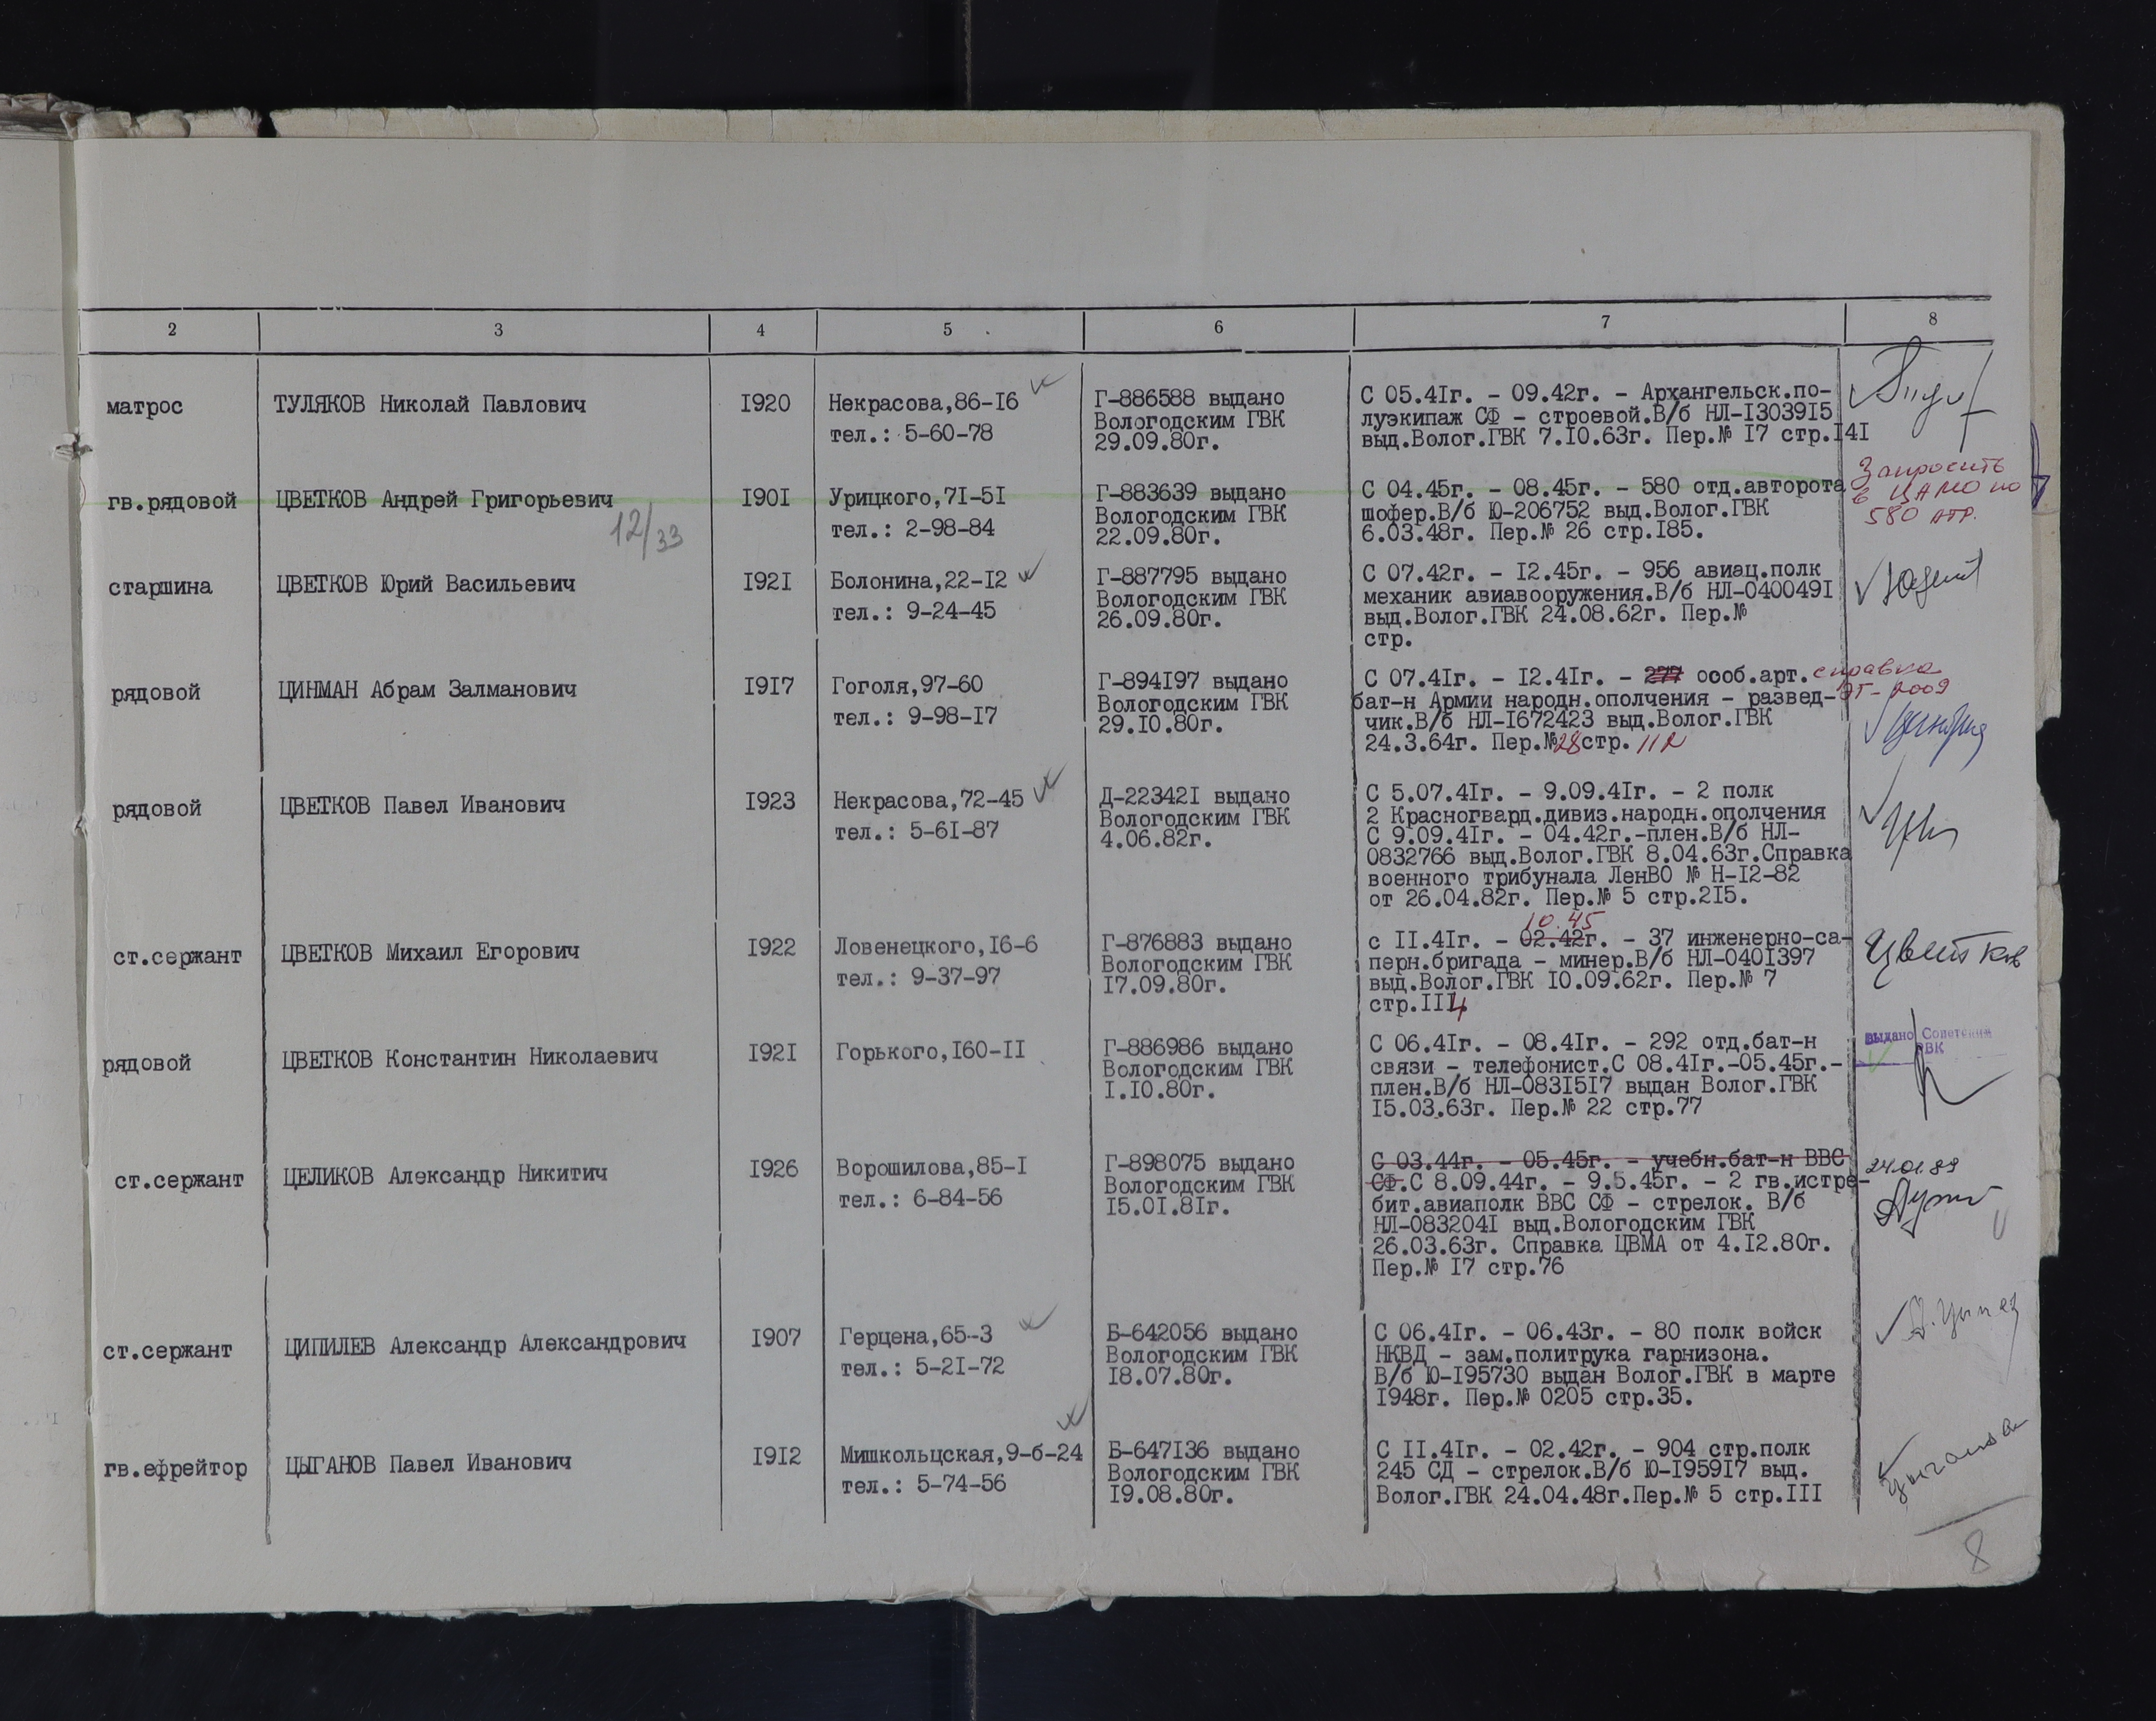 2 3 4 5 6 7 8
матрос
ТУЛЯКОВ Николай Павлович
1920
Некрасова,86-16
тел.: 5-60-78
Г-886588 выдано
Вологодским ГВК
29.09.80г.
С 05.41г. - 09.42г. - Архангельск.по-
луэкипаж СФ - строевой.В/б НЛ-1303915
выд.Волог.ГВК 7.10.63г. Пер.№ 17 стр.141
гв.рядовой
ЦВЕТКОВ Андрей Григорьевич
12/33
1901
Урицкого,71-51
тел.: 2-98-84
Г-883639 выдано
Вологодским ГВК
22.09.80г.
С 04.45г. - 08.45г. - 580 отд.авторота
шофер.В/б Ю-206752 выд.Волог.ГВК
6.03.48г. Пер.№ 26 стр.185.
Запросить
в ЦАМО по
580 атр.
старшина
ЦВЕТКОВ Юрий Васильевич
1921
Болонина,22-12
тел.: 9-24-45
Г-887795 выдано
Вологодским ГВК
26.09.80г.
С 07.42г. - 12.45г. - 956 авиац.полк
механик авиавооружения.В/б НЛ-0400491
выд.Волог.ГВК 24.08.62г. Пер.№
стр.
рядовой
ЦИНМАН Абрам Залманович
1917
Гоголя,97-60
тел.: 9-98-17
Г-894197 выдано
Вологодским ГВК
29.10.80г.
С 07.41г. - 12.41г. - 277 особ.арт.
бат-н Армии народн.ополчения - развед-
чик.В/б НЛ-1672423 выд.Волог.ГВК
24.3.64г. Пер.№28стр. 112
справка
рядовой
ЦВЕТКОВ Павел Иванович
1923
Некрасова,72-45
тел.: 5-61-87
Д-223421 выдано
Вологодским ГВК
4.06.82г.
С 5.07.41г. - 9.09.41г. - 2 полк
2 Красногвард.дивиз.народн.ополчения
С 9.09.41г. - 04.42г.-плен.В/б НЛ-
0832766 выд.Волог.ГВК 8.04.63г.Справка
военного трибунала ЛенВО № Н-12-82
от 26.04.82г. Пер.№ 5 стр.215.
ст.сержант
ЦВЕТКОВ Михаил Егорович
1922
Ловенецкого,16-6
тел.: 9-37-97
Г-876883 выдано
Вологодским ГВК
17.09.80г.
10.45
с 11.41г. - 02.42г. - 37 инженерно-са-
перн.бригада - минер.В/б НЛ-0401397
выд.Волог.ГВК 10.09.62г. Пер.№ 7
стр.114
Цветков
рядовой
ЦВЕТКОВ Константин Николаевич
1921
Горького,160-11
Г-886986 выдано
Вологодским ГВК
1.10.80г.
С 06.41г. - 08.41г. - 292 отд.бат-н
связи - телефонист.С 08.41г.-05.45г.-
плен.В/б НЛ-0831517 выдан Волог.ГВК
15.03.63г. Пер.№ 22 стр.77
выдано Советским
РВК
ст.сержант
ЦЕЛИКОВ Александр Никитич
1926
Ворошилова,85-1
тел.: 6-84-56
Г-898075 выдано
Вологодским ГВК
15.01.81г.
С 03.44г. - 05.45г. - учебн.бат-н ВВС
СФ.С 8.09.44г. - 9.5.45г. - 2 гв.истре-
бит.авиаполк ВВС СФ - стрелок. В/б
НЛ-0832041 выд.Вологодским ГВК
26.03.63г. Справка ЦВМА от 4.12.80г.
Пер.№ 17 стр.76
24.01.89
ст.сержант
ЦИПИЛЕВ Александр Александрович
1907
Герцена,65-3
тел.: 5-21-72
Б-642056 выдано
Вологодским ГВК
18.07.80г.
С 06.41г. - 06.43г. - 80 полк войск
НКВД - зам.политрука гарнизона.
В/б Ю-195730 выдан Волог.ГВК в марте
1948г. Пер.№ 0205 стр.35.
гв.ефрейтор
ЦЫГАНОВ Павел Иванович
1912
Мишкольцская,9-б-24
тел.: 5-74-56
Б-647136 выдано
Вологодским ГВК
19.08.80г.
С 11.41г. - 02.42г. - 904 стр.полк
245 СД - стрелок.В/б Ю-195917 выд.
Волог.ГВК 24.04.48г.Пер.№ 5 стр.111
8